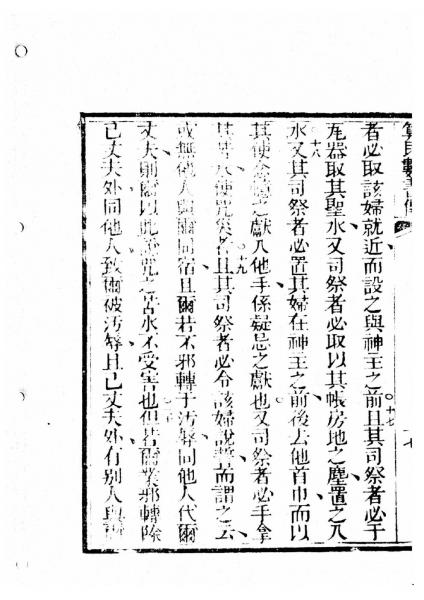 算民數書傳
者必取該婦就近而設之與神王之前且其司祭者必于
十七
瓦器取其聖水又司祭者必取以其帳房地之塵置之入
水又其司祭者必置其婦在神王之前後去他首巾而以
十八
其使念憶之獻入他手係疑忌之獻也又司祭者必手拿
其苦水使咒災者且其司祭者必令該婦說誓而謂之云
十九
或無他人與爾同宿且爾若不邪轉于汚辱同他人代爾
丈夫則爾以此詛咒之苦水不受害也但若爾業邪轉除
二十
己丈夫外同他人致爾被汚辱且己丈夫外有别人與